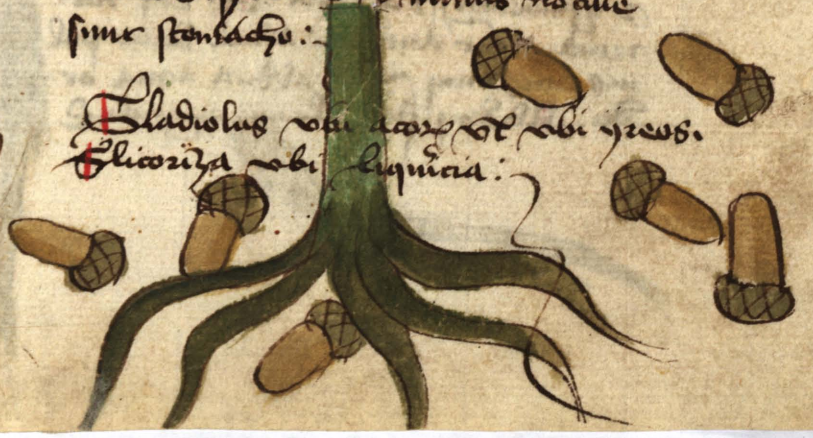 sunt stomacho :
Gladiolus ubi acorꝰ vl̄ ubi yreos.
Glicoriza ubi liquiricia :